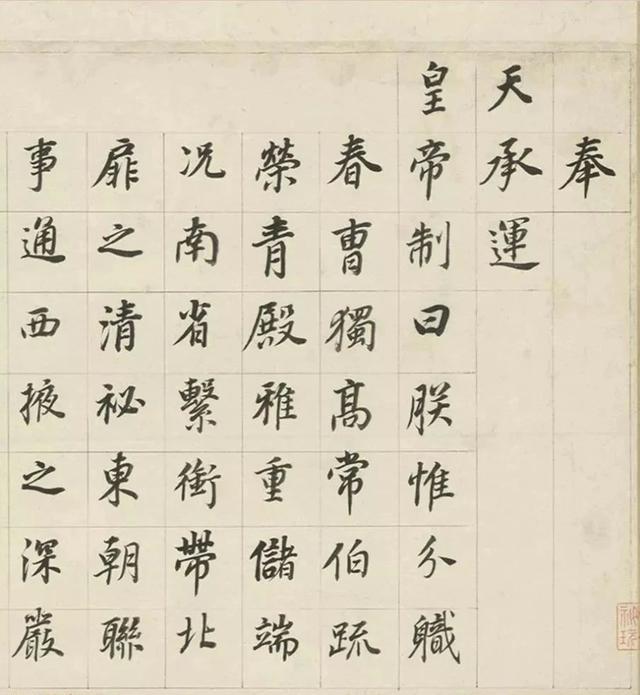 奉
天承運
皇帝制曰朕惟分職
春曹獨髙常伯疏
榮青殿雅重儲端
况南省繫銜帶北
扉之清祕東朝聯
事通西掖之深嚴